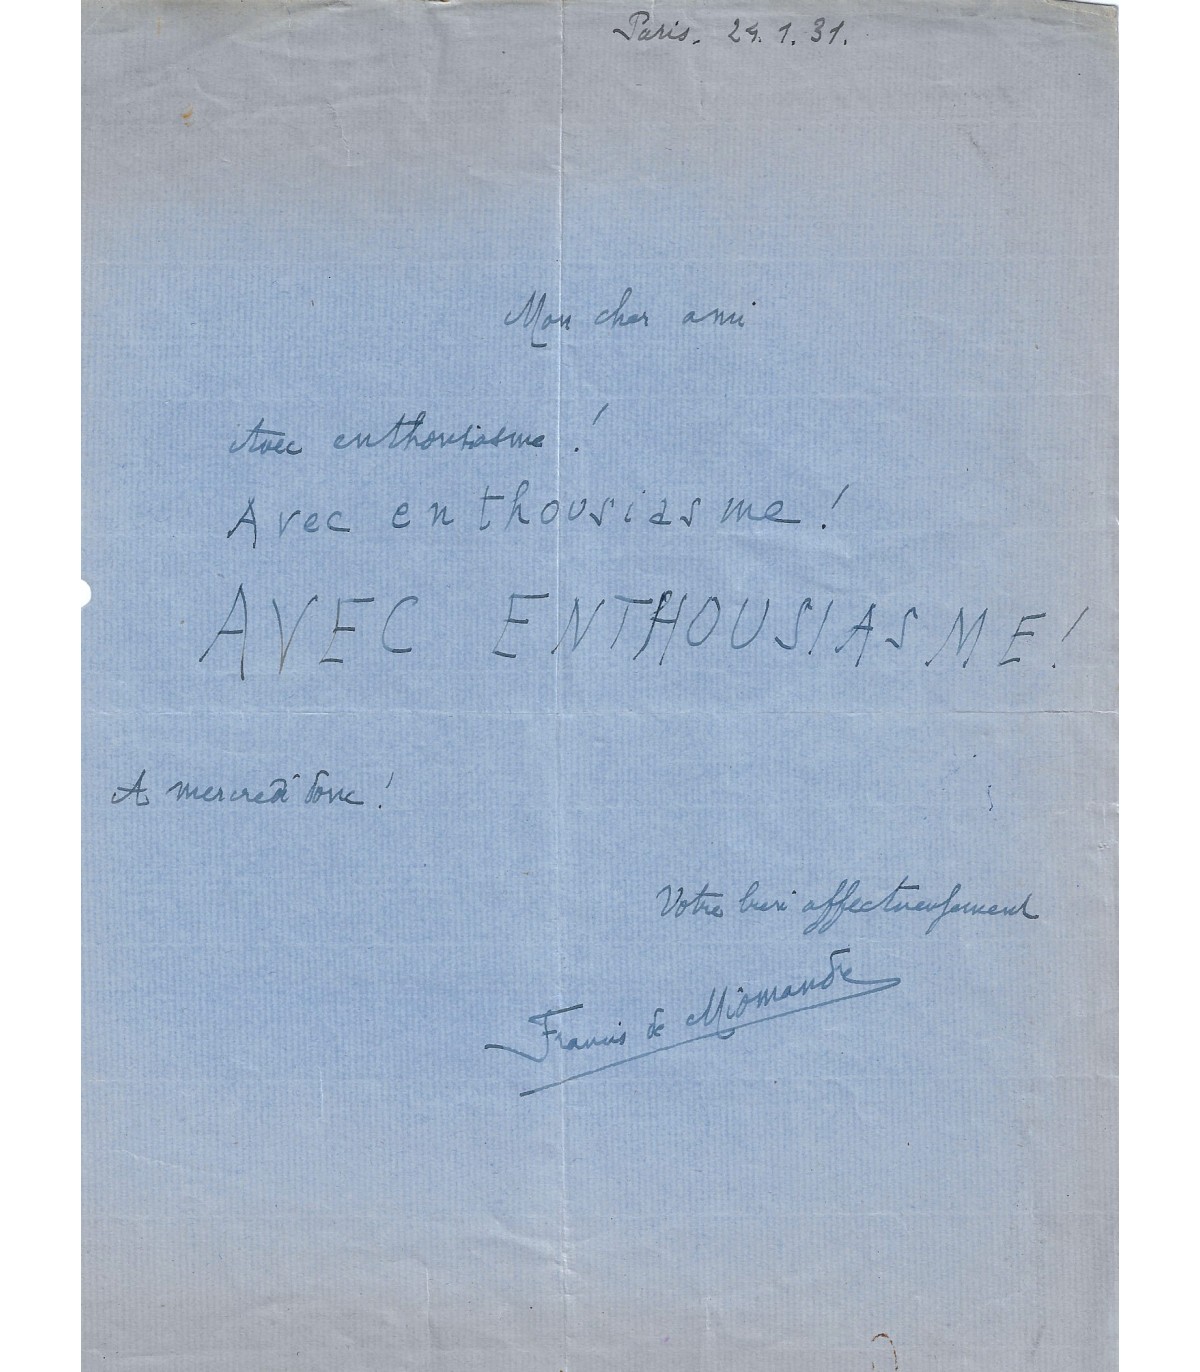 Paris. 24.1.31.
Mon cher ami
Avec enthousiasme!
Avec enthousiasme!
AVEC ENTHOUSIASME!
A mercredi donc!
Votre bien affectueusement
Francis de Miomandre